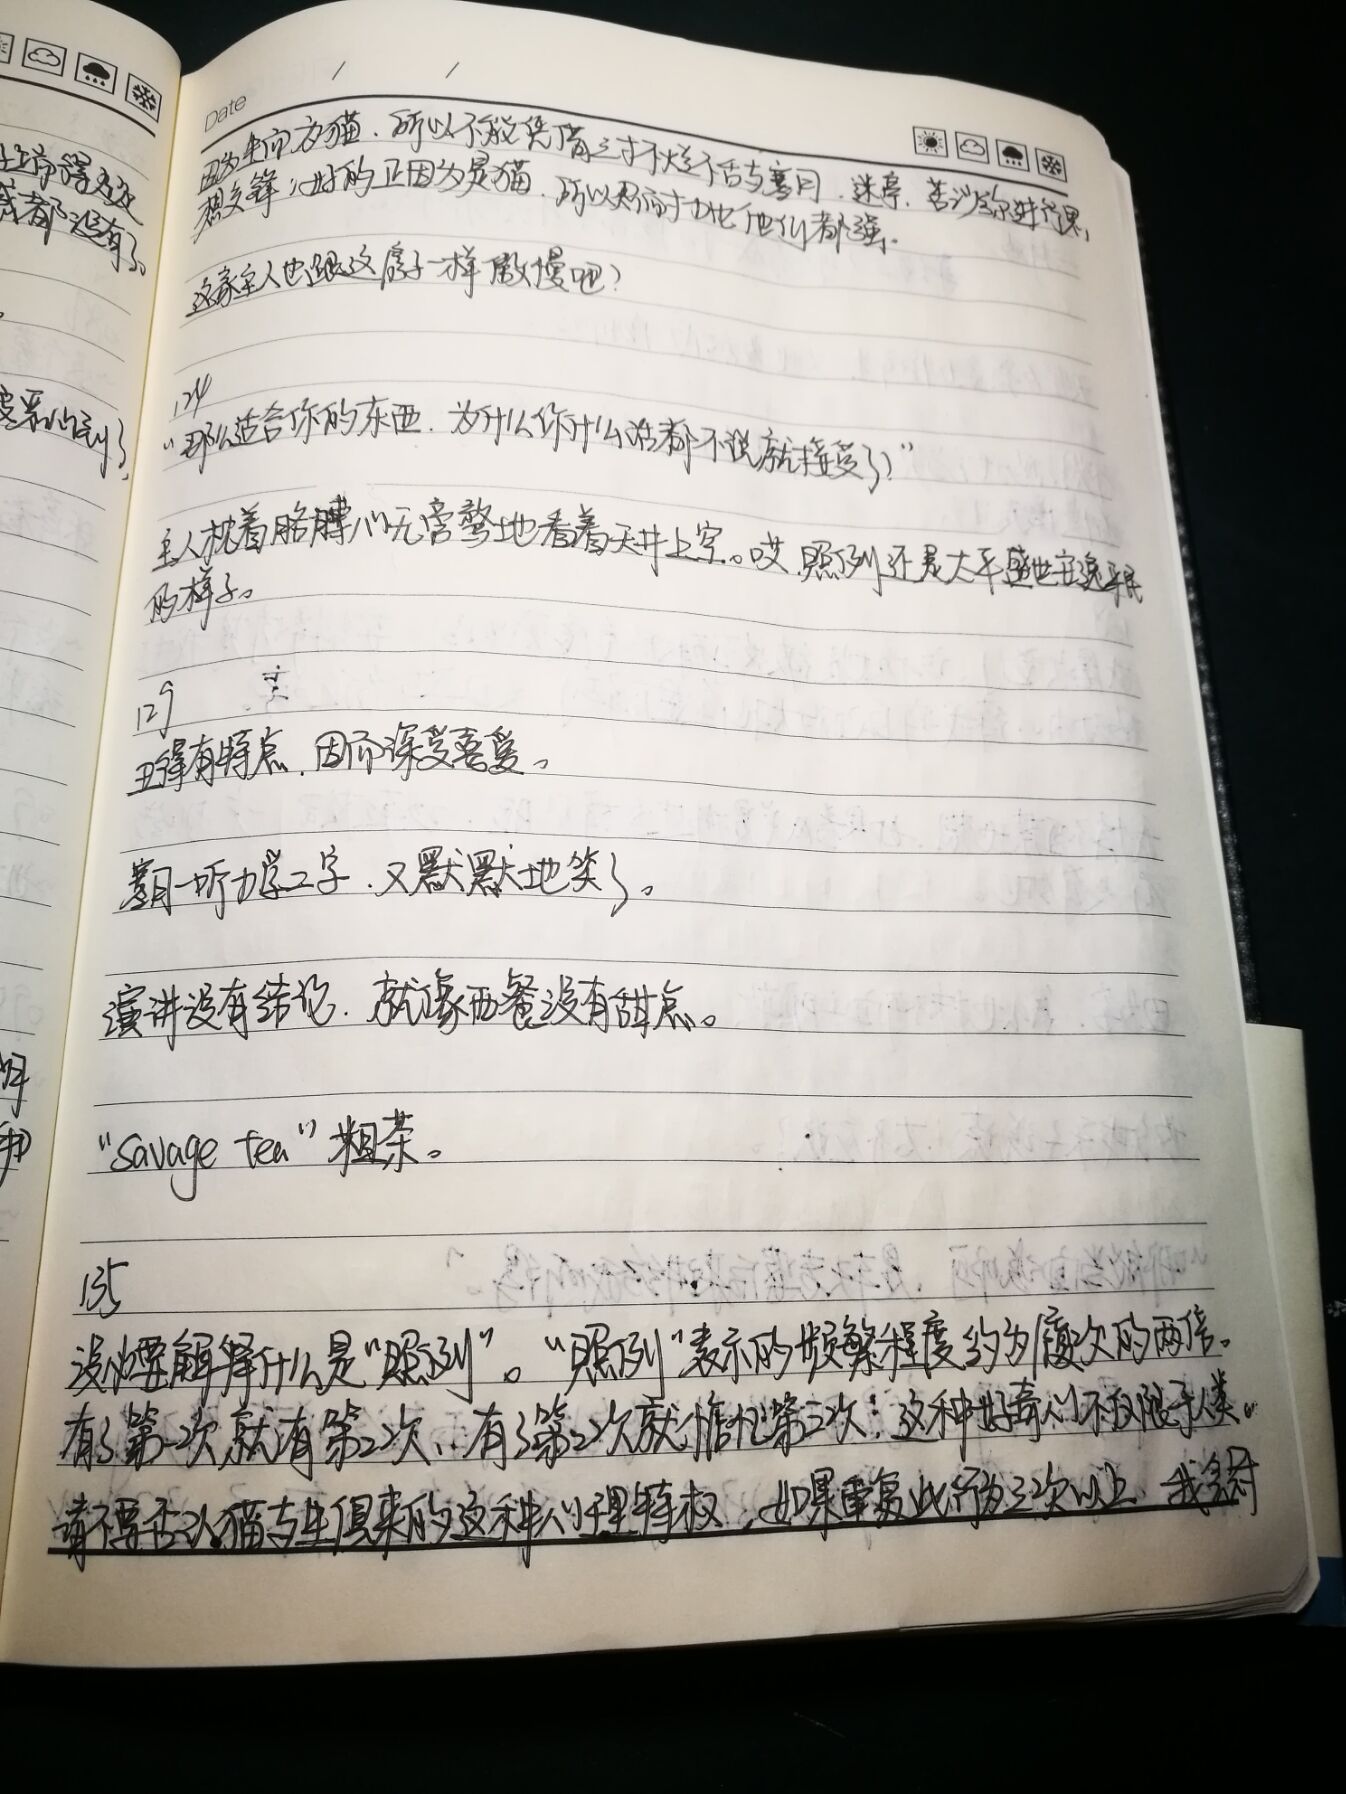 Date / /
因为生而为猫，所以不能凭借三寸不烂之舌与寒月、迷亭、苦沙弥进行思
想交锋；好的正因为是猫，所以忍耐力比他们都强。
这家主人也跟这房子一样傲慢吧？
124
“那么适合你的东西，为什么你什么话都不说就接受了？”
主人枕着胳膊心无旁骛地看着天井上空。哎，照例还是太平盛世安逸平民
的样子。
129
丑得有特点，因而深受喜爱。
寒月一听力学二字，又默默地笑了。
演讲没有结论，就像西餐没有甜点。
“savage tea”粗茶。
135
没必要解释什么是“照例”。“照例”表示的频繁程度约为屡次的两倍。
有了第一次就有第二次，有了第二次就惦记第三次；这种好奇心不仅限于人类。
请不要否认猫与生俱来的这种心理特权，如果重复此行为三次以上，我会对
上帝得
都没有了。